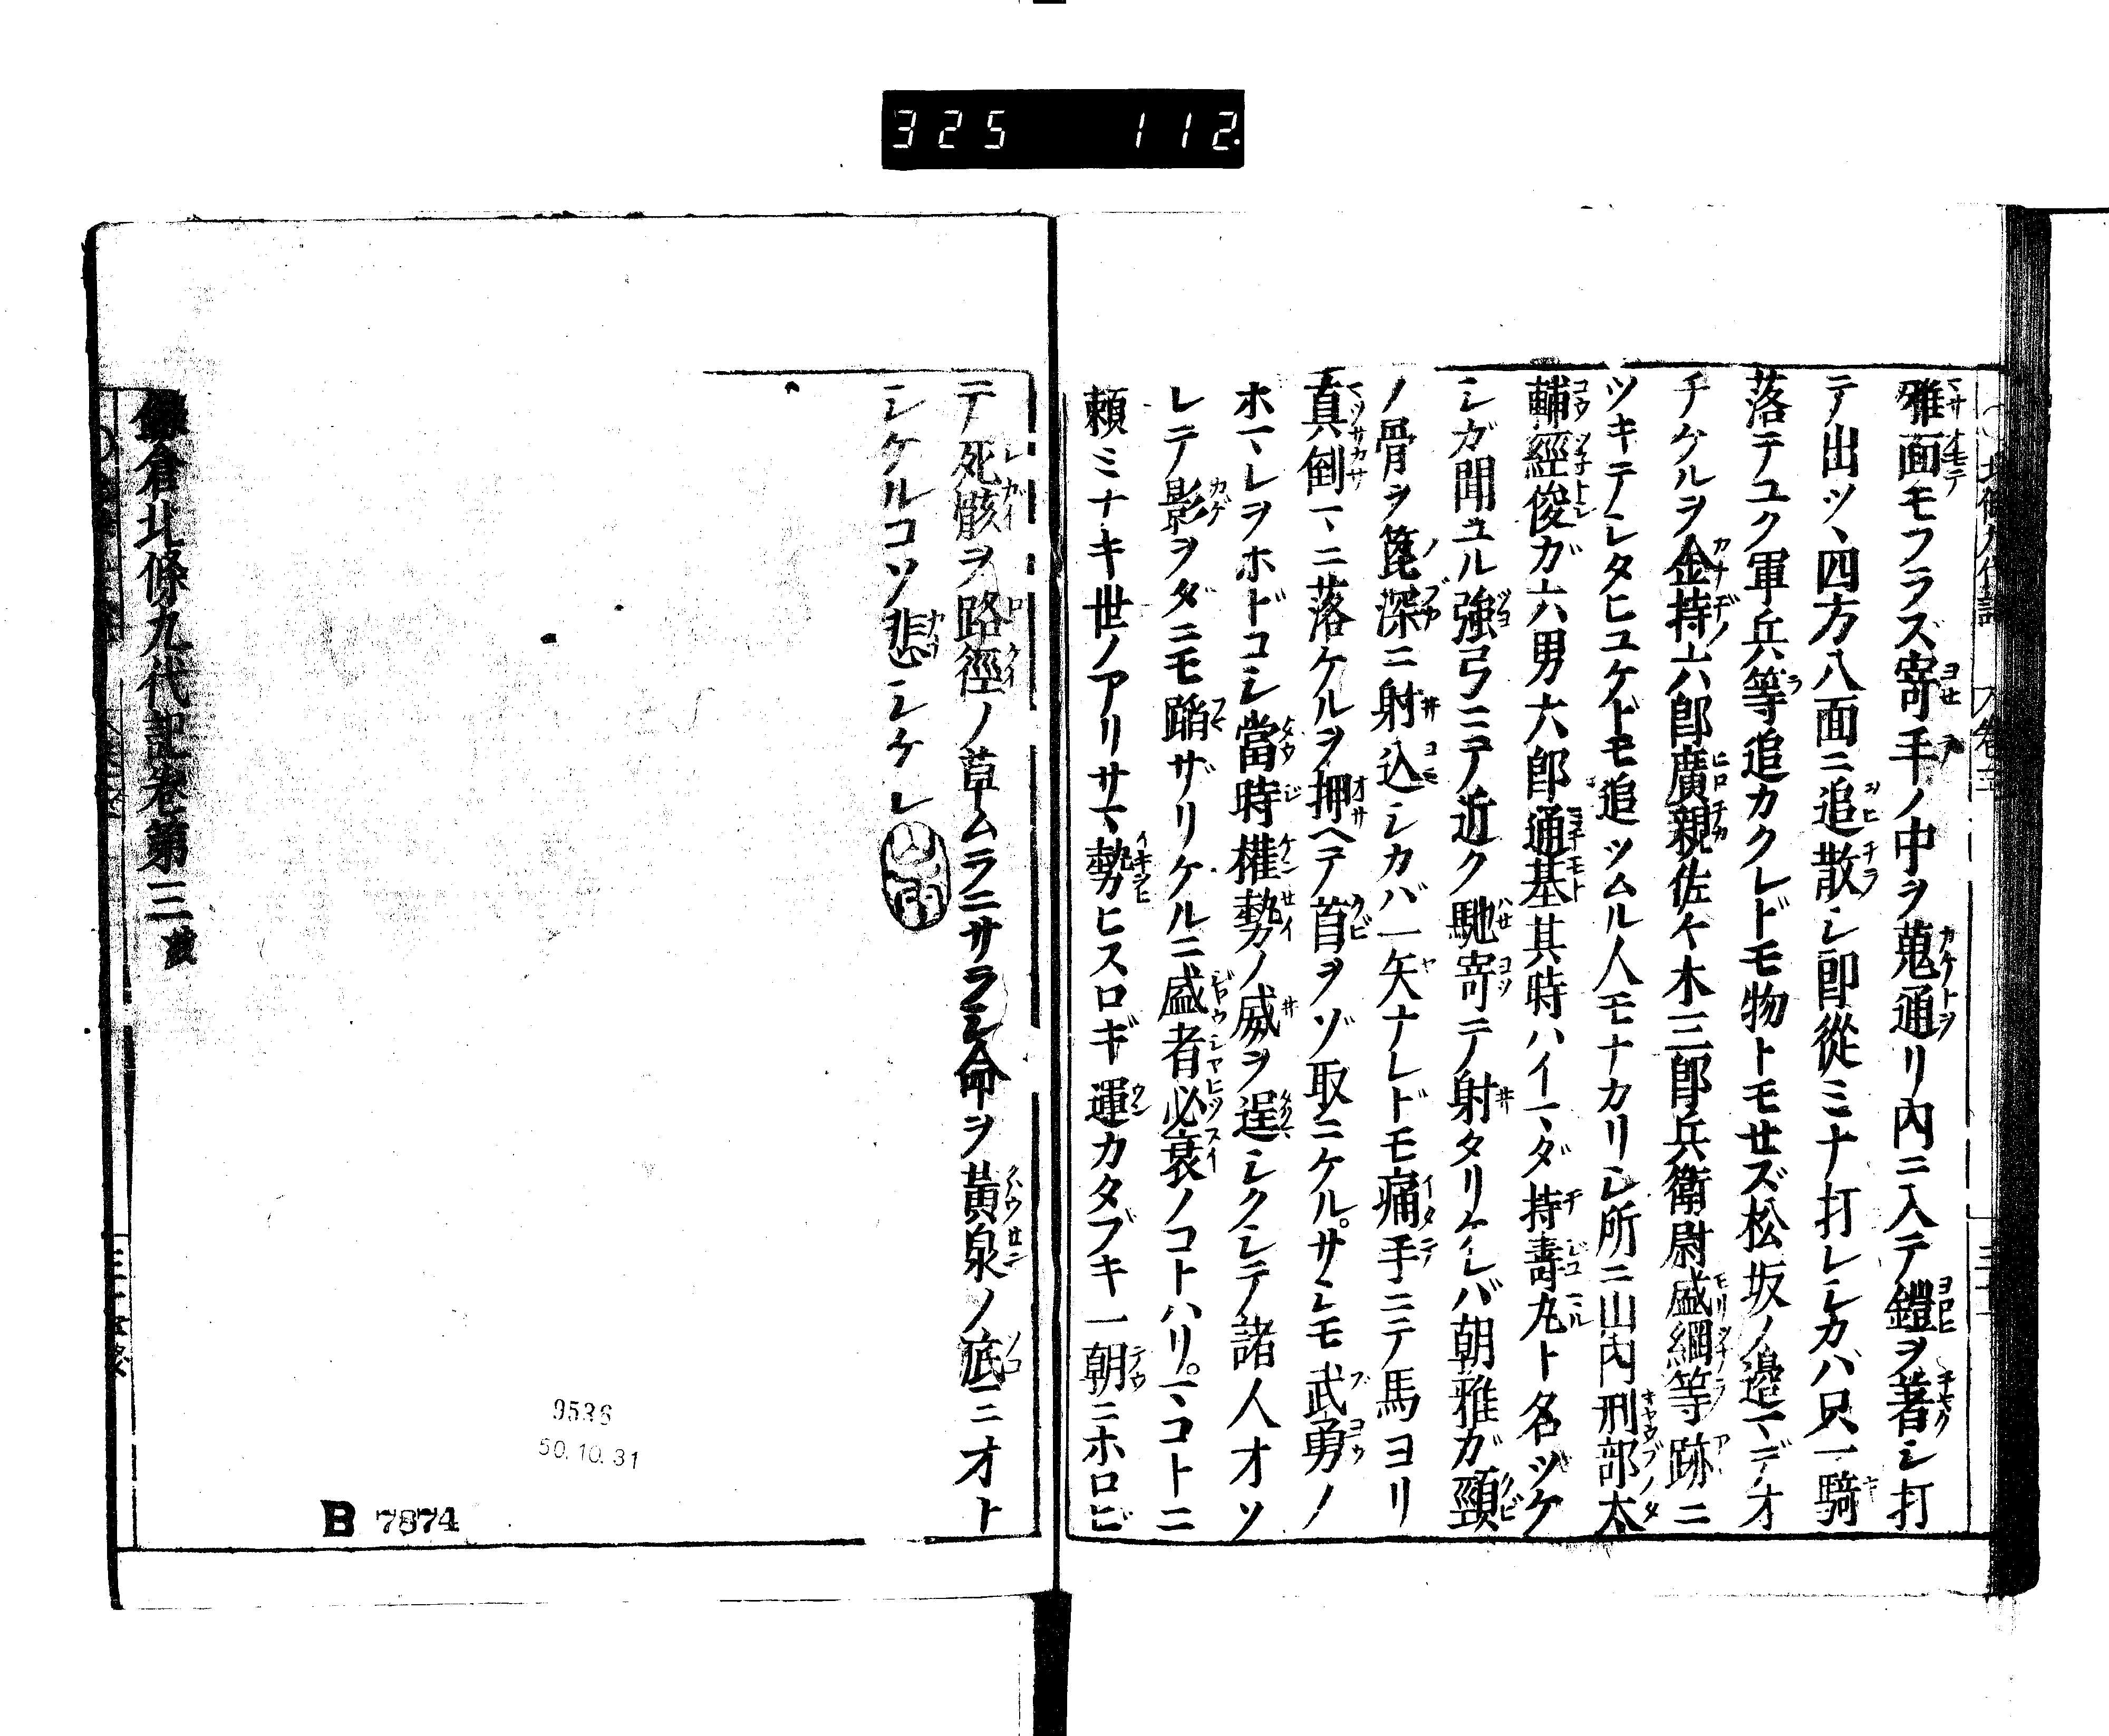 325 112.
雅面モフラズ寄手ノ中ヲ蒐通リ内ニ入テ鎧ヲ著シ打
テ出ツヽ四方八面ニ追散シ郎從ミナ打レシカバ只一騎
落テユク軍兵等追カクレドモ物トモせズ松坂ノ邉マデオ
チケルヲ金持六郎廣親佐々木三郎兵衛尉盛綱等跡ニ
ツキテシタヒユケドモ追ツムル人モナカリシ所ニ山内刑部太
輔經俊ガ六男六郎通基其時ハイマダ持壽丸ト名ヅケ
シガ聞ユル強弓ニテ近ク馳寄テ射タリケレバ朝雅ガ頸
ノ骨ヲ篦深ニ射込シカバ一矢ナレドモ痛手ニテ馬ヨリ
真倒マニ落ケルヲ押ヘテ首ヲゾ取ニケル。サシモ武勇ノ
ホマレヲホドコシ當時權勢ノ威ヲ逞シクシテ諸人オソ
レテ影ヲダニモ蹈ザリケルニ盛者必衰ノコトハリ。マコトニ
頼ミナキ世ノアリサマ勢ヒスロギ運カタブキ一朝ニホロビ
テ死骸ヲ路徑ノ草ムラニサラシ命ヲ黄泉ノ底ニオト
シケルコソ悲シケレ
鎌倉北條九代記卷第三
9536
50.10.31
B 7874